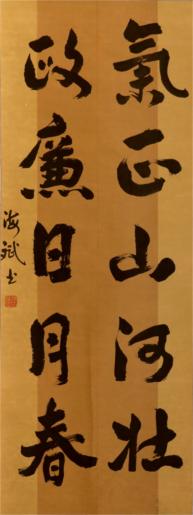 氣正山河壮
政廉日月春
海斌书